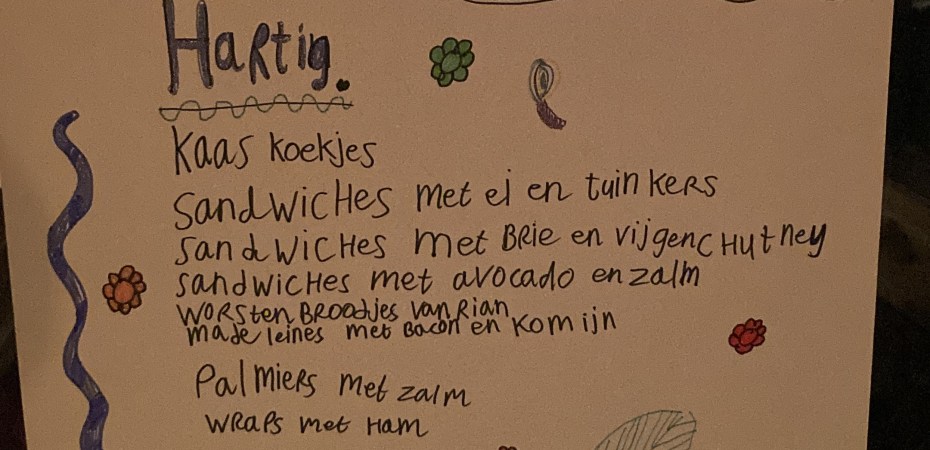 Hartig.
Kaas koekjes
Sandwiches met ei en tuinkers
Sandwiches met Brie en vijgenchutney
sandwiches met avocado en zalm
worsten Broodjes van Rian
madeleines met Bacon en komijn
Palmiers met zalm
wraps met Ham